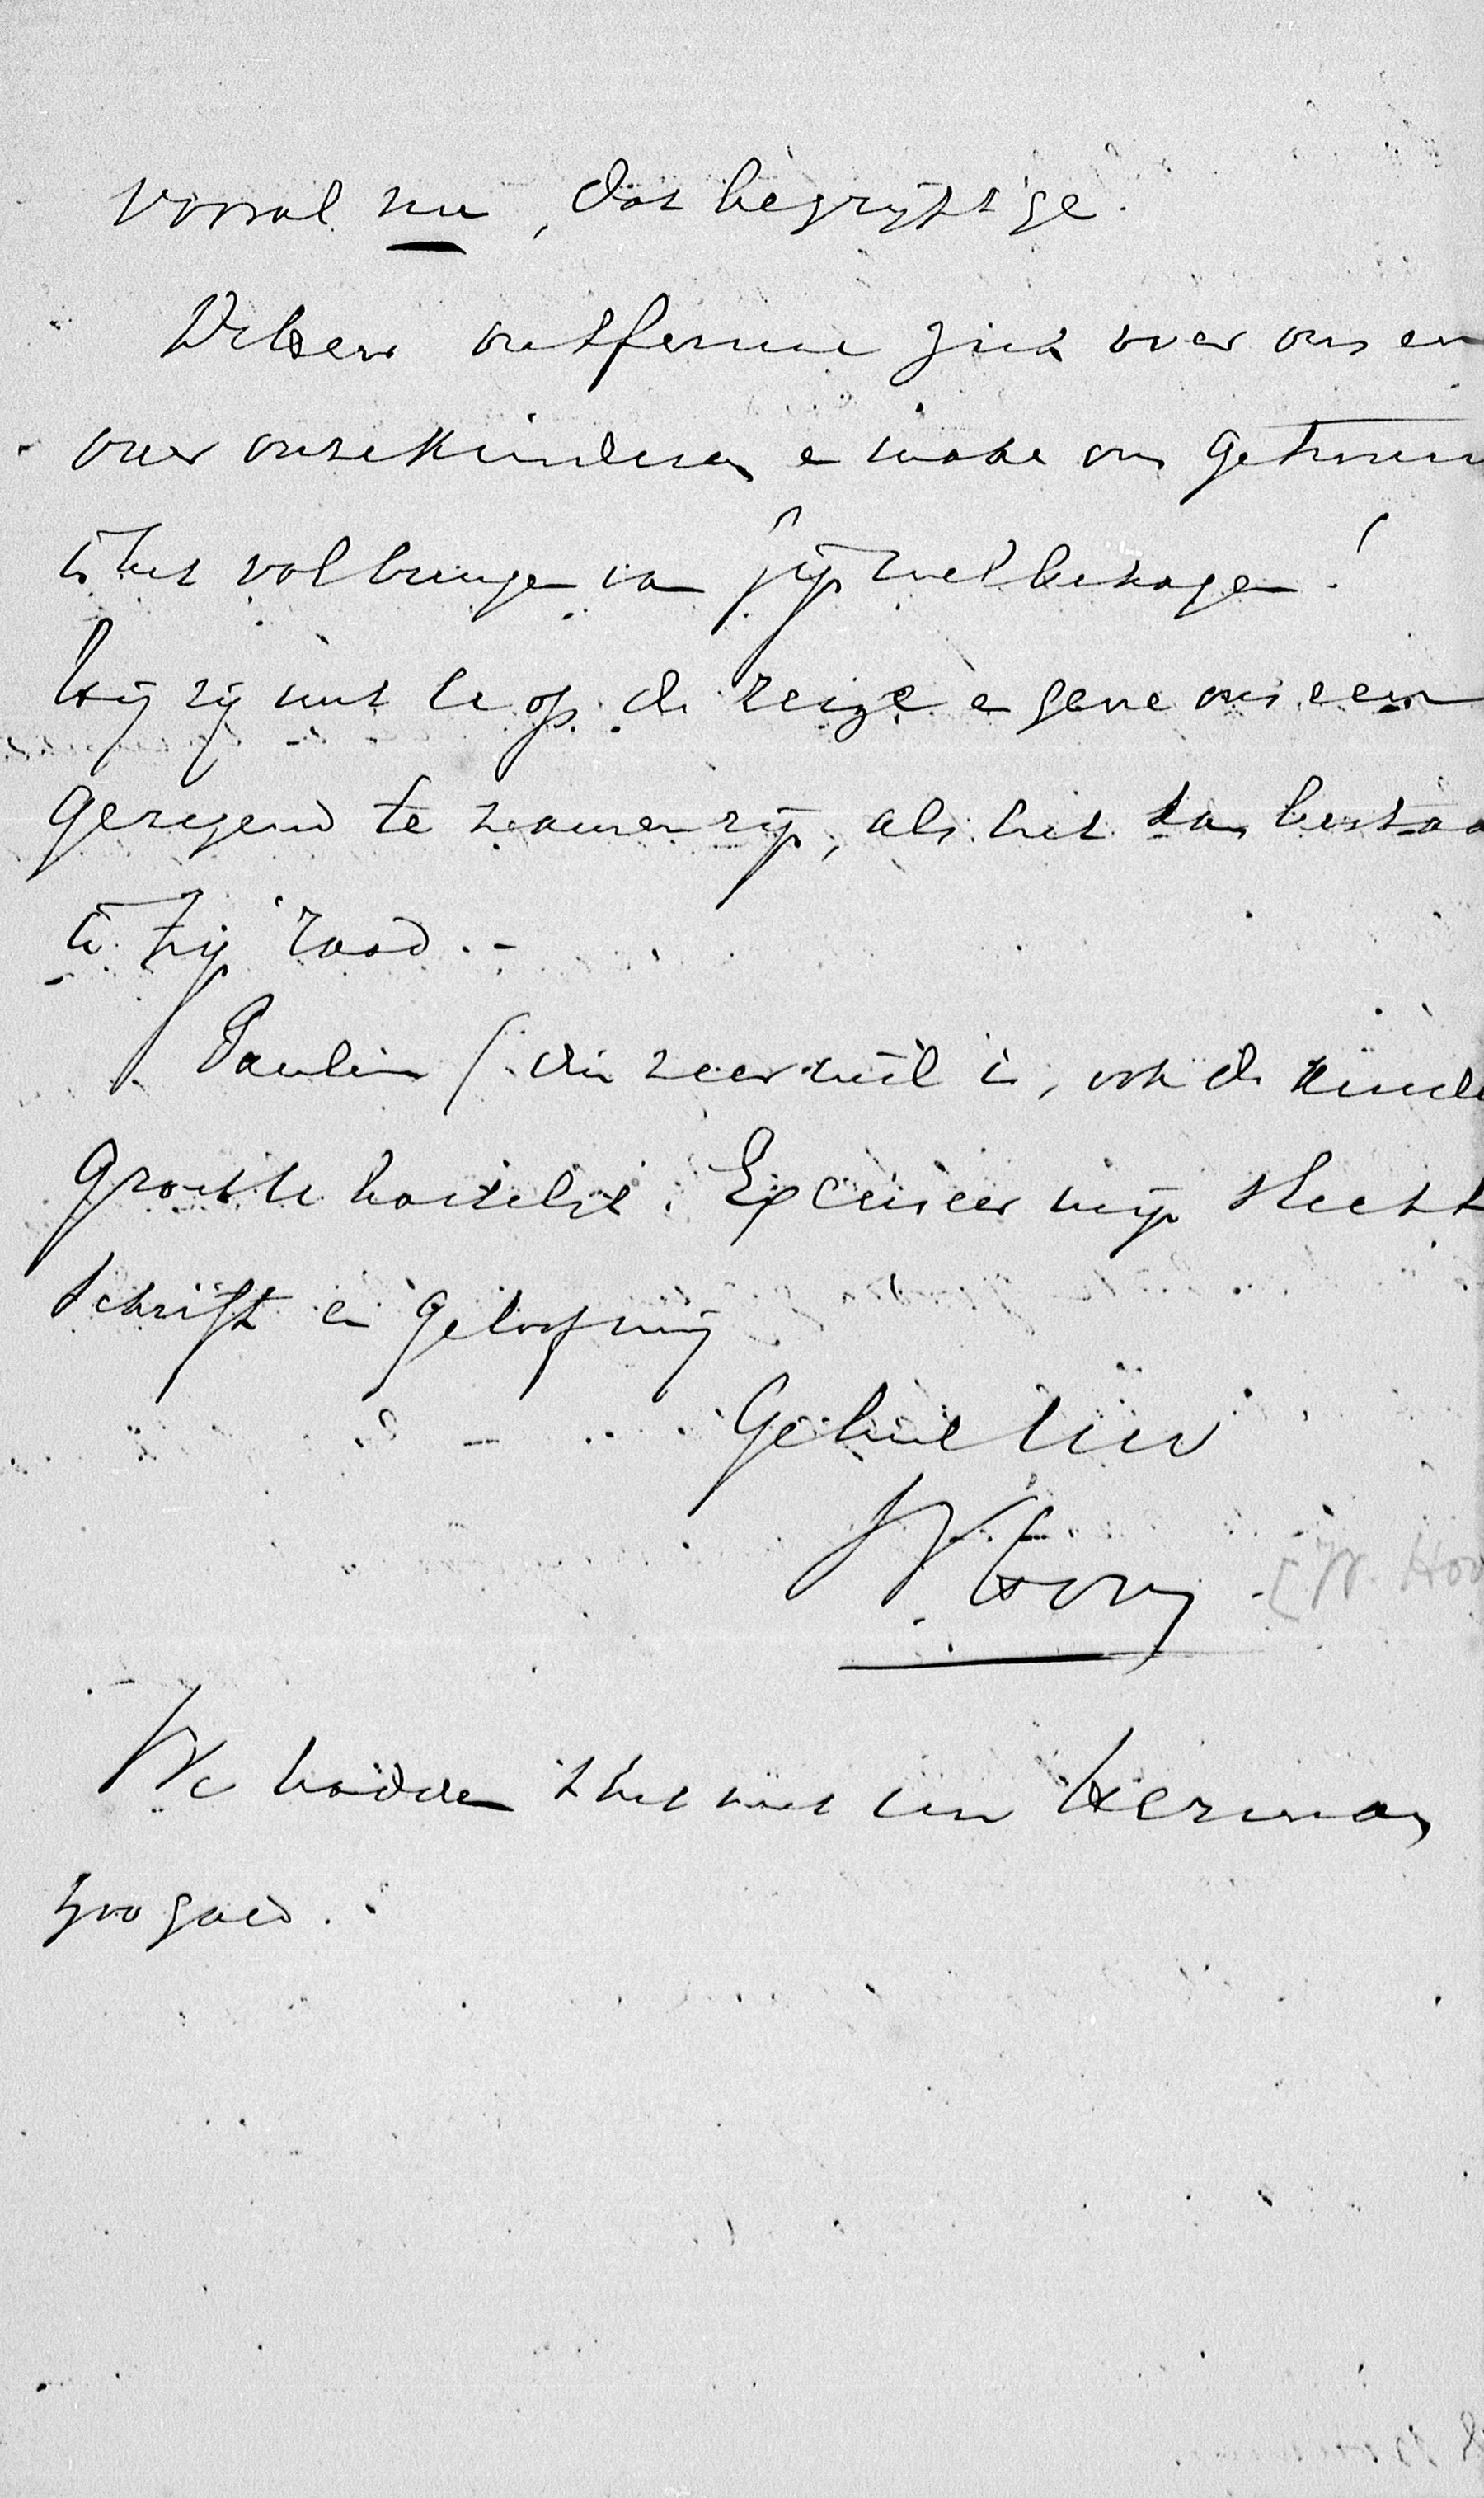 vooral nu, dat begrijpt ge.
De Heer ontferme zich over ons en
over onze kinderen en make ons getrouw
in het volbrengen van zijn welbehagen!
Hij zij met U op de reize en geve ons een
gezegend te zamen zijn, als het kan bestaa
in zijn raad. -
Pauline (die zeer wel is, ook de kinde
groette hartelijk. Excuseer mijn slecht
schrift en geloof mij
Geheel Uw
W Hovy [W. Hov
We hadden het met uw Herman
zoo goed.